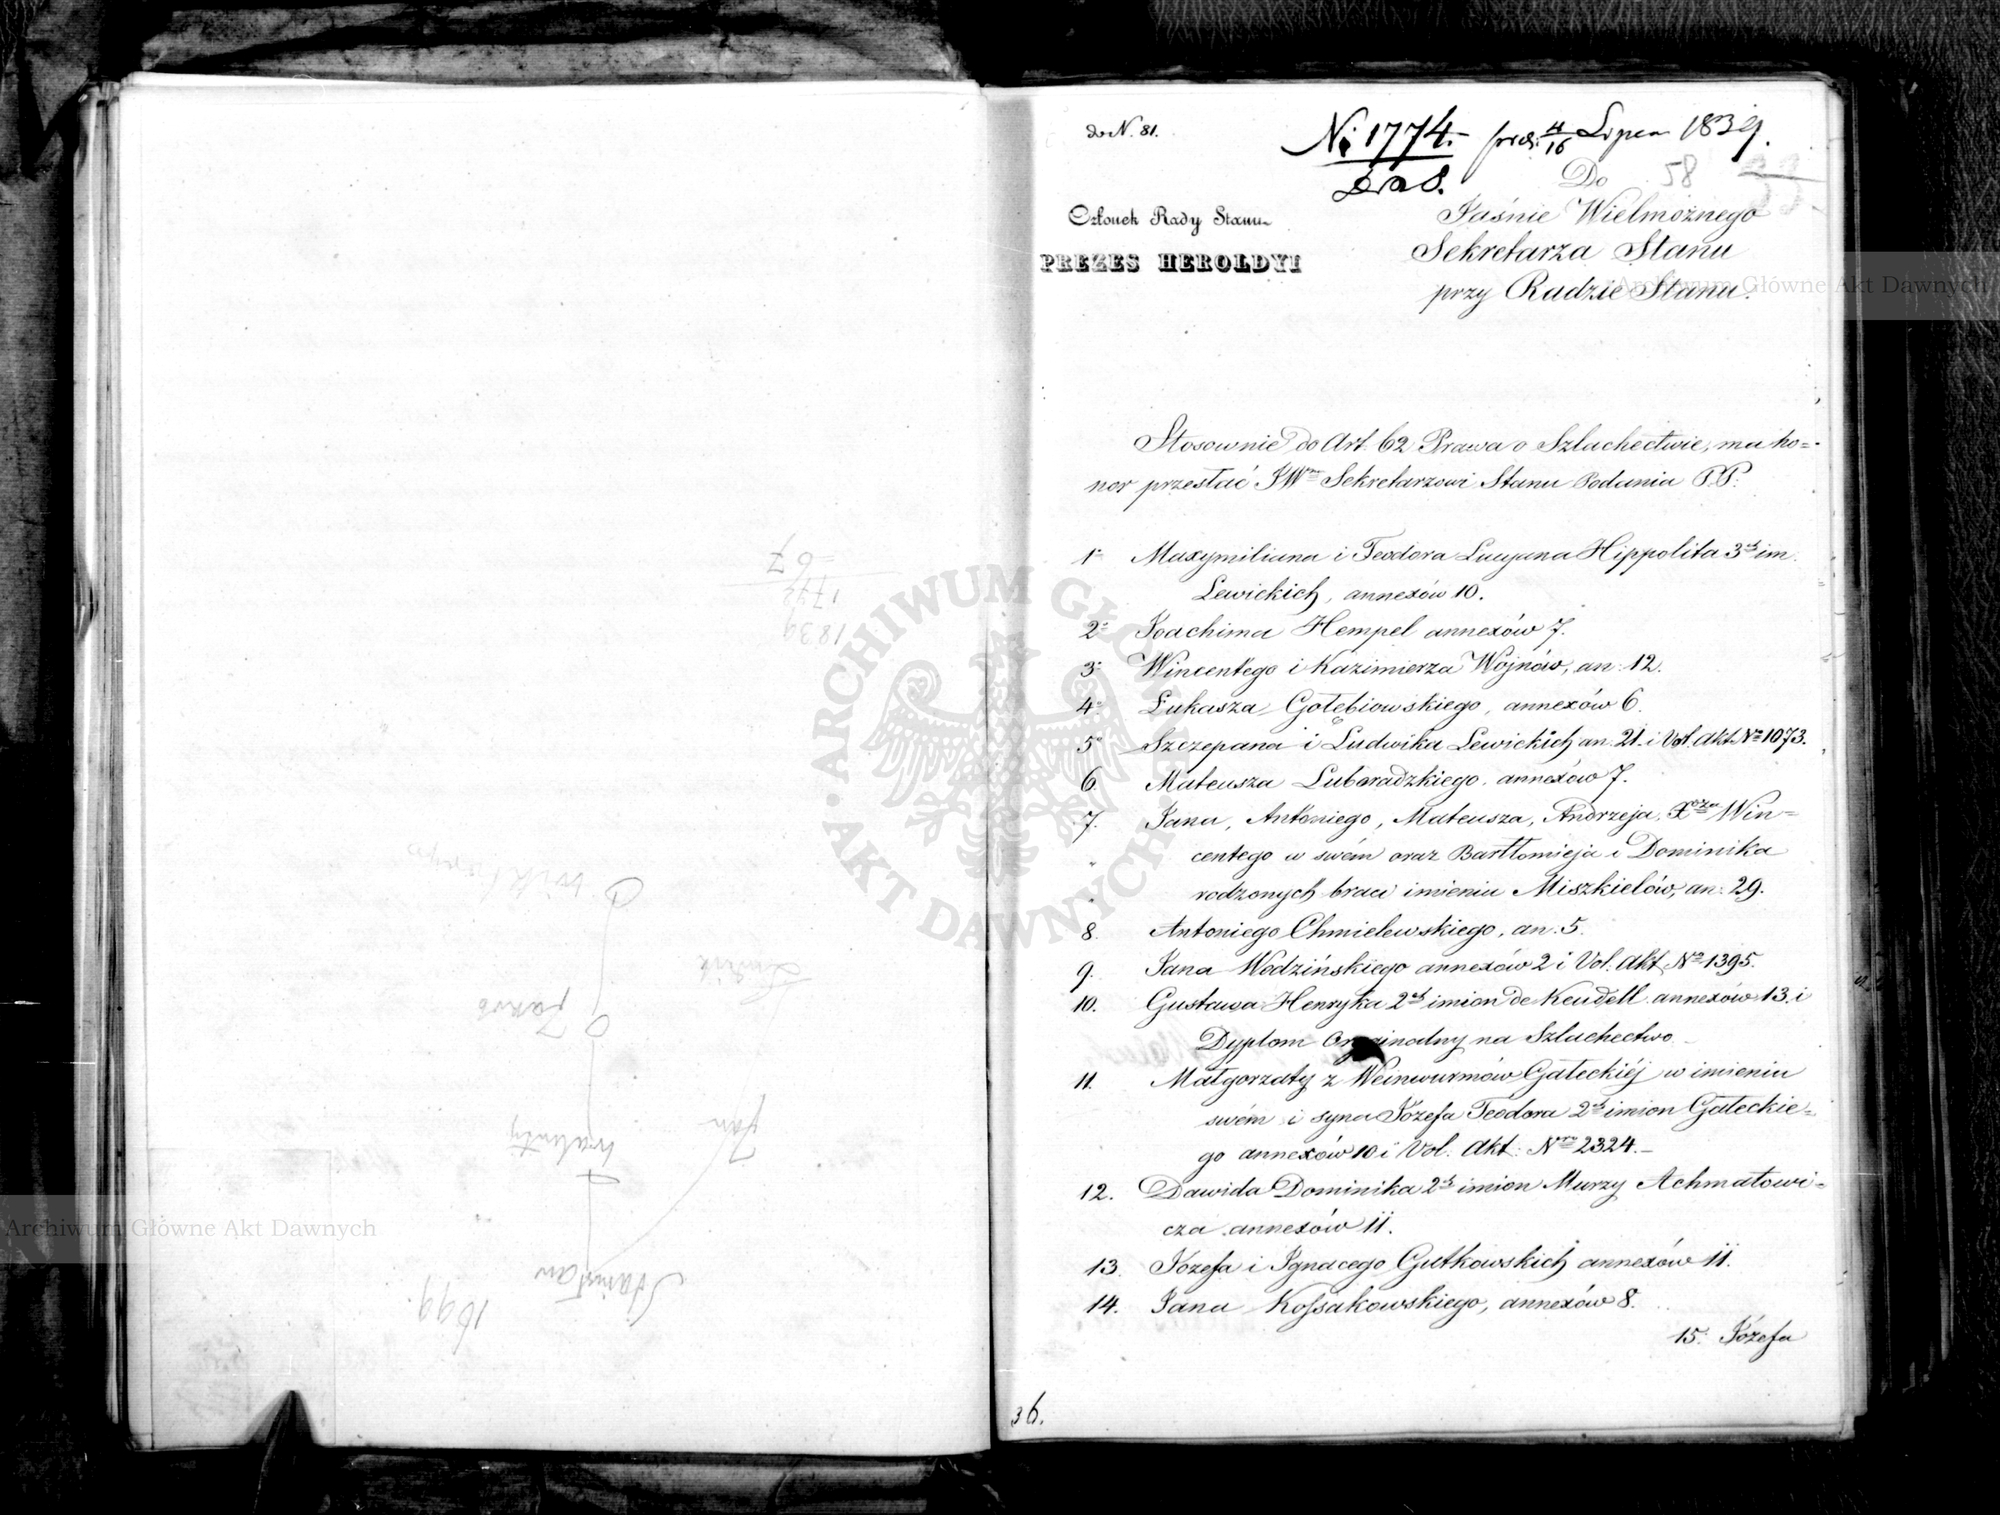 1839
1772
67
Jakób
Jan
Walenty
Stanisław
1699.
do N. 81.
N: 1774. 4/16 Lipca 1839.
Do 58
Członek Rady Stanu
PREZES HEROLDYI
Jaśnie Wielmożnego
Sekretarza Stanu
przy Radzie Stanu.
Stosownie do Art. 62 Prawa o Szlachectwie, ma ho=
nor przesłać JWmu Sekretarzowi Stanu Podania P.P.
1o Maxymiliana i Teodora Lucyana Hippolita 3ch im.
Lewickich, annexów 10.
2o Joachima Hempel annexów 7.
3o Wincentego i Kazimierza Wojnów, an: 12.
4o Łukasza Gołębiowskiego, annexów 6.
5o Szczepana i Ludwika Lewickich an: 21. i Vol. Akt. No 1073.
6. Mateusza Luboradzkiego, annexów 7.
7. Jana, Antoniego, Mateusza, Andrzeja, Xdza Win=
" centego w swém oraz Bartłomieja i Dominika
" rodzonych braci imieniu Miszkielów, an: 29.
8. Antoniego Chmielewskiego, an. 5.
9. Jana Wodzińskiego annexów 2 i Vol. Akt No 1395.
10. Gustawa Henryka 2ch imion de Keudell annexów 13. i
Dyplom Orginalny na Szlachectwo.
11. Małgorzaty z Weinwurmów Gałeckiéj w imieniu
swém i syna Józefa Teodora 2ch imion Gałeckie=
go annexów 10 i Vol. Akt: Nro 2324.
12. Dawida Dominika 2ch imion Murzy Achmatowi=
cza annexów 11.
13. Józefa i Ignacego Gutkowskich annexów 11.
14. Jana Kossakowskiego, annexów 8.
15. Józefa
36.
ARCHIWUM GŁÓWNE AKT DAWNYCH
Archiwum Główne Akt Dawnych
Archiwum Główne Akt Dawnych